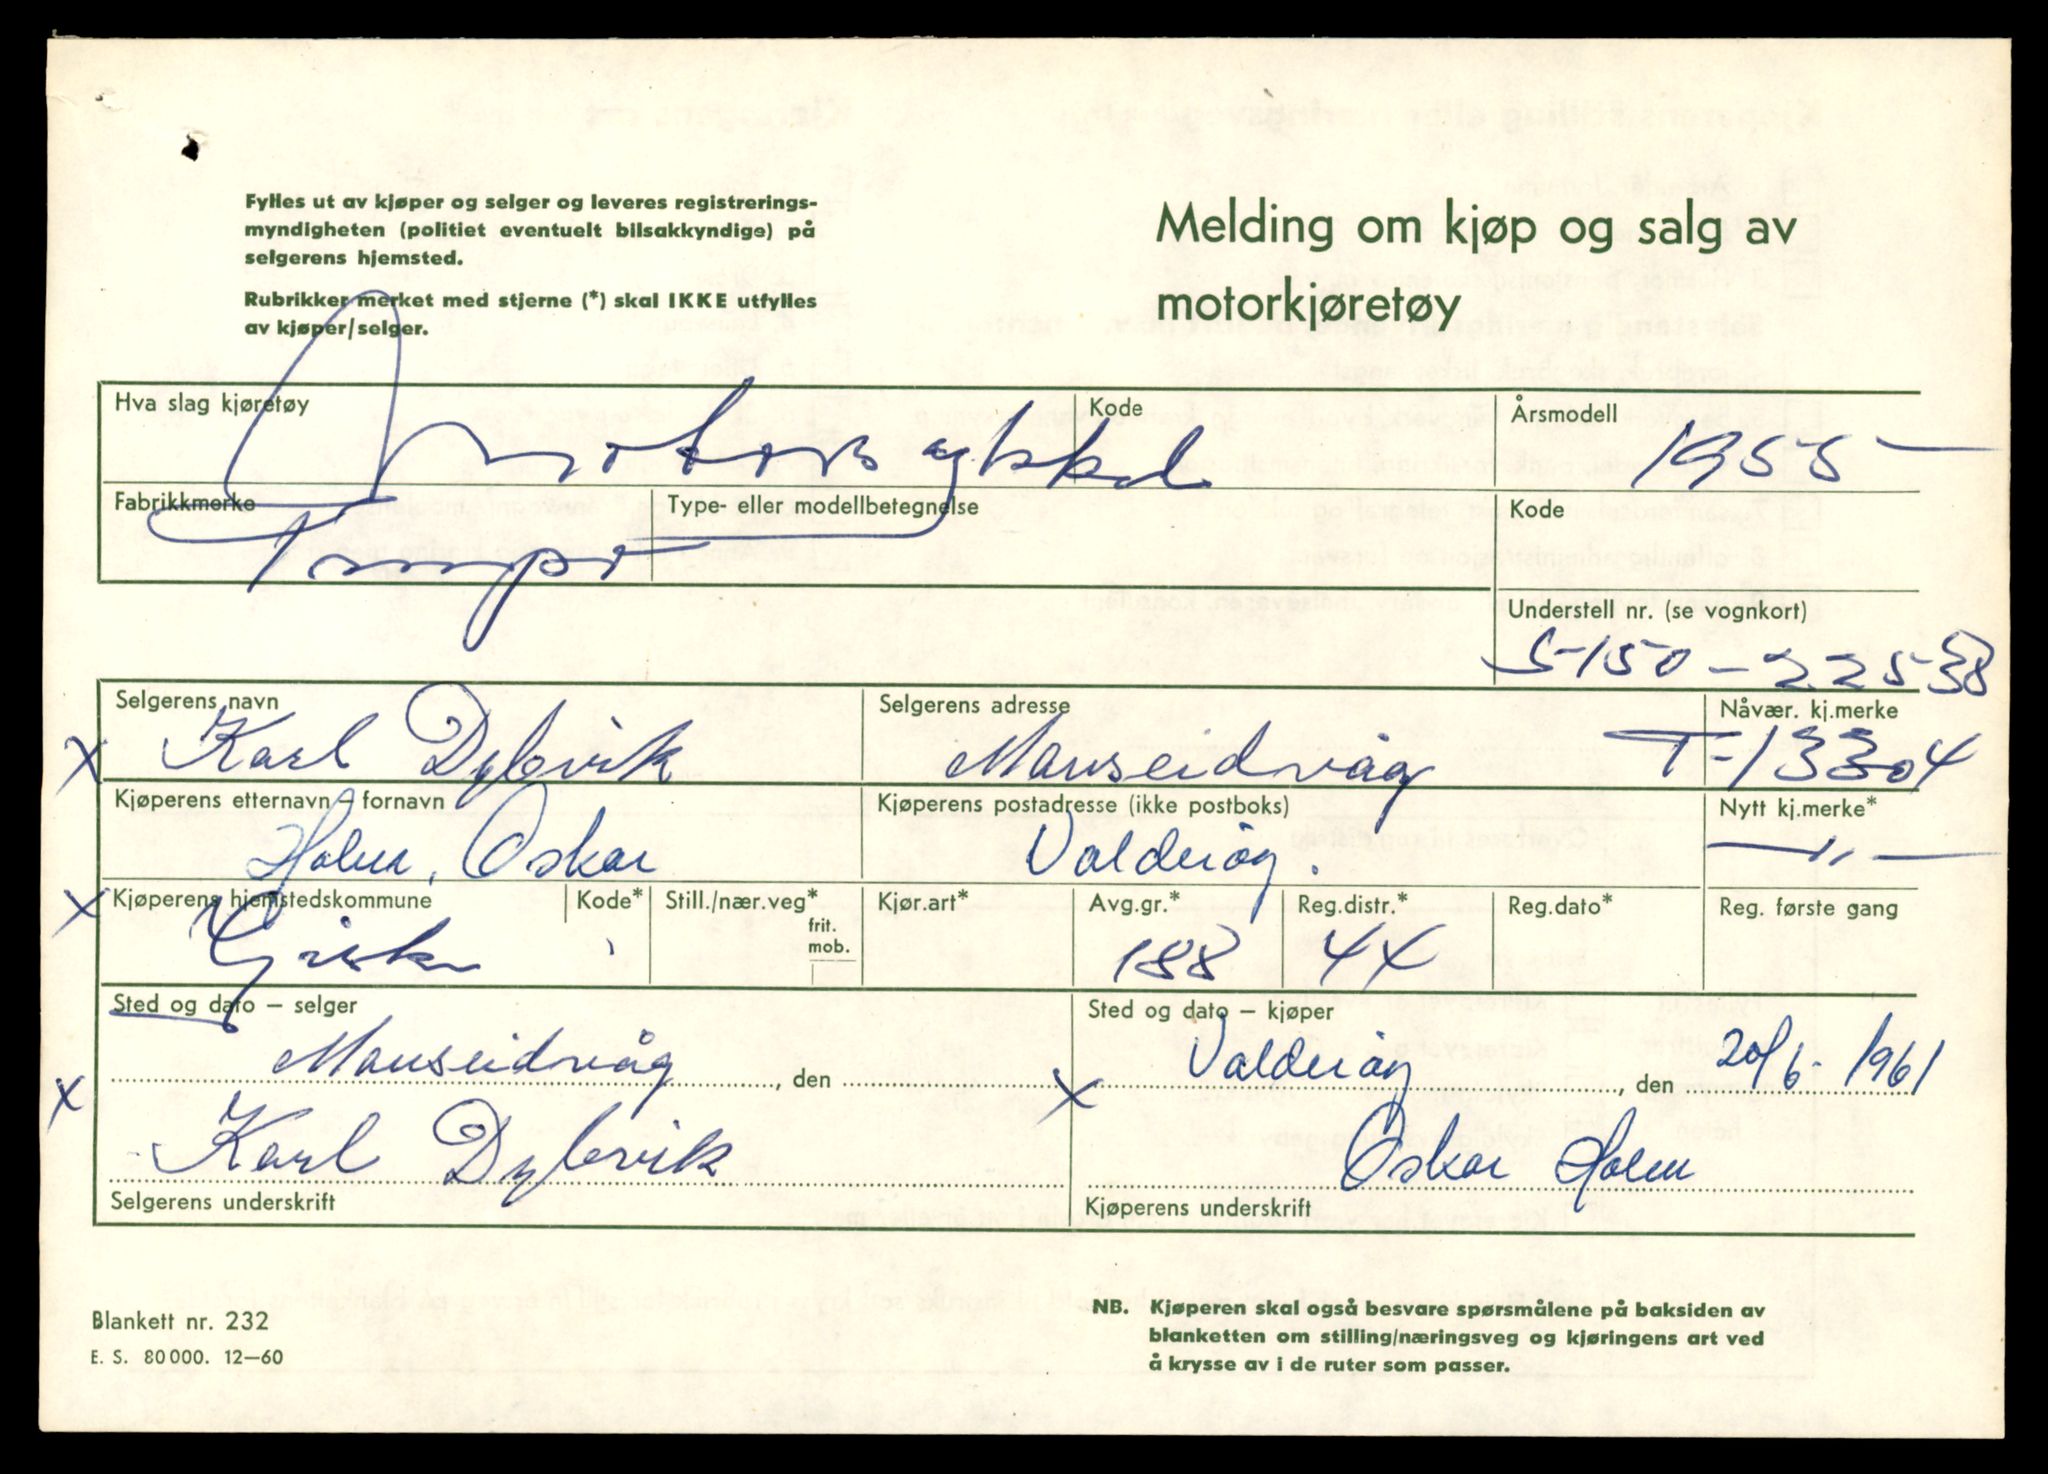 Fylles ut av kjøper og selger og leveres registrerings-
myndigheten (politiet eventuelt bilsakkyndige) på
selgerens hjemsted.
Rubrikker merket med stjerne (*) skal IKKE utfylles
av kjøper/selger.
Melding om kjøp og salg av
motorkjøretøy
Hva slag kjøretøy Kode Årsmodell
Motorsykkel 1955
Fabrikkmerke Type- eller modellbetegnelse Kode
Tempo
Understell nr. (se vognkort)
S-150-22538
Selgerens navn Selgerens adresse Nåvær. kj.merke
X Karl Dybvik Mauseidvåg T-13304
Kjøperens etternavn – fornavn Kjøperens postadresse (ikke postboks) Nytt kj.merke*
Holm, Oskar Valderøy. —"—
X Kjøperens hjemstedskommune Kode* Still./nær.veg* Kjør.art* Avg.gr.* Reg.distr.* Reg.dato* Reg. første gang
frit.
mob.
Giske 188 44
Sted og dato – selger Sted og dato – kjøper
Mauseidvåg, den Valderøy, den 20/6-1961
X Karl Dybvik X Oskar Holm
Selgerens underskrift Kjøperens underskrift
Blankett nr. 232
E. S. 80 000. 12–60
NB. Kjøperen skal også besvare spørsmålene på baksiden av
blanketten om stilling/næringsveg og kjøringens art ved
å krysse av i de ruter som passer.